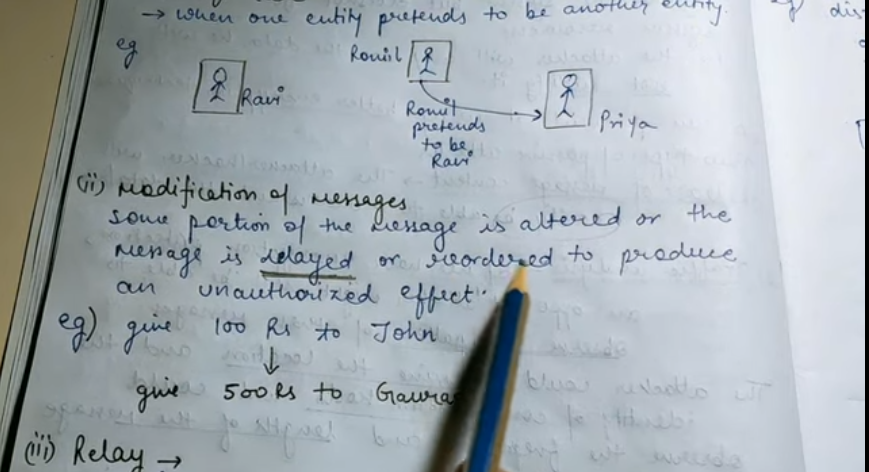 → when one entity pretends to be another entity.
eg
Romil
Ravi
Romil
pretends
to be
Ravi
Priya
(ii) Modification of messages
some portion of the message is altered or the
message is delayed or reordered to produce
an unauthorized effect.
eg) give 100 Rs to John
↓
give 500 Rs to Gaurav
(iii) Relay →
dis